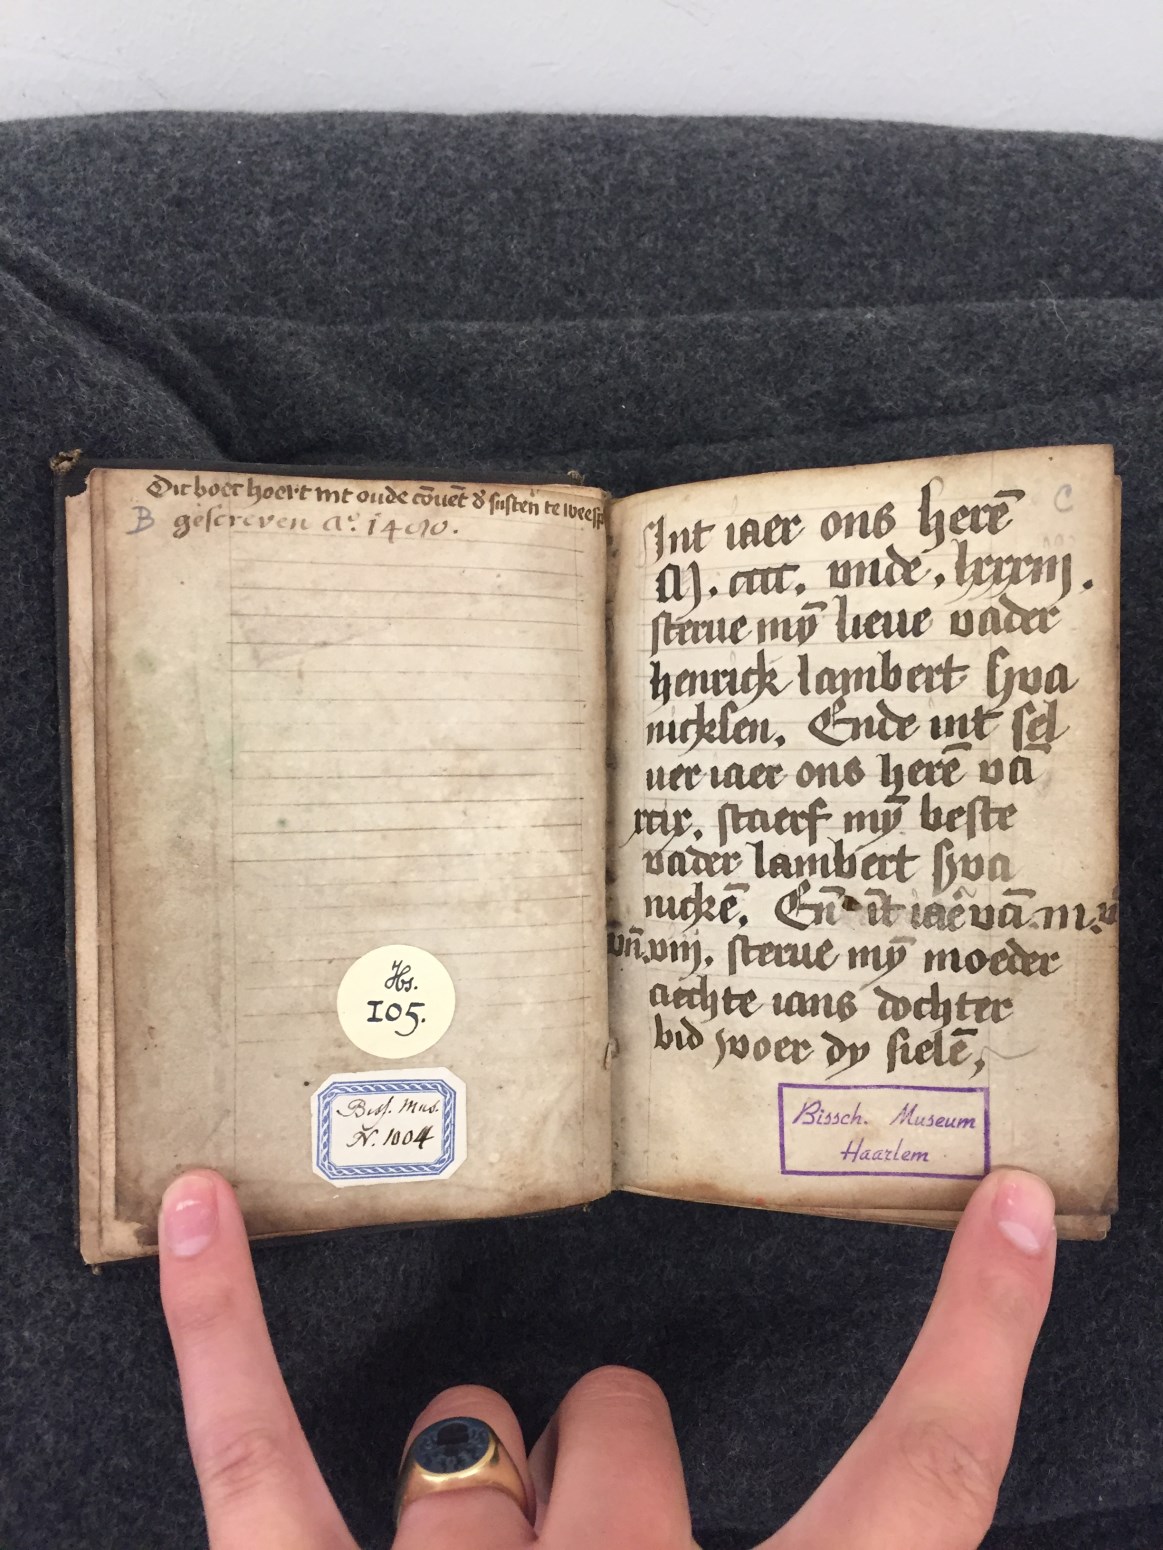 Dit boec hoert int oude cōuēt d' susten te weesp
B gescreven A°. 1490.
Hs.
105.
Biss. Mus.
N. 1004
C
Int iaer ons herē
M. cccc. vnde. lxxxiij.
sterue mȳ lieue vader
henrick lambert
nicksen. Ende int sel
uer iaer ons herē vā
xcix. staerf mȳ beste
vader lambert
nickē. Eñ īt iaer vā
viij. sterue mȳ moeder
aechte ians dochter
bid voer dy sielē,
Bissch. Museum
Haarlem